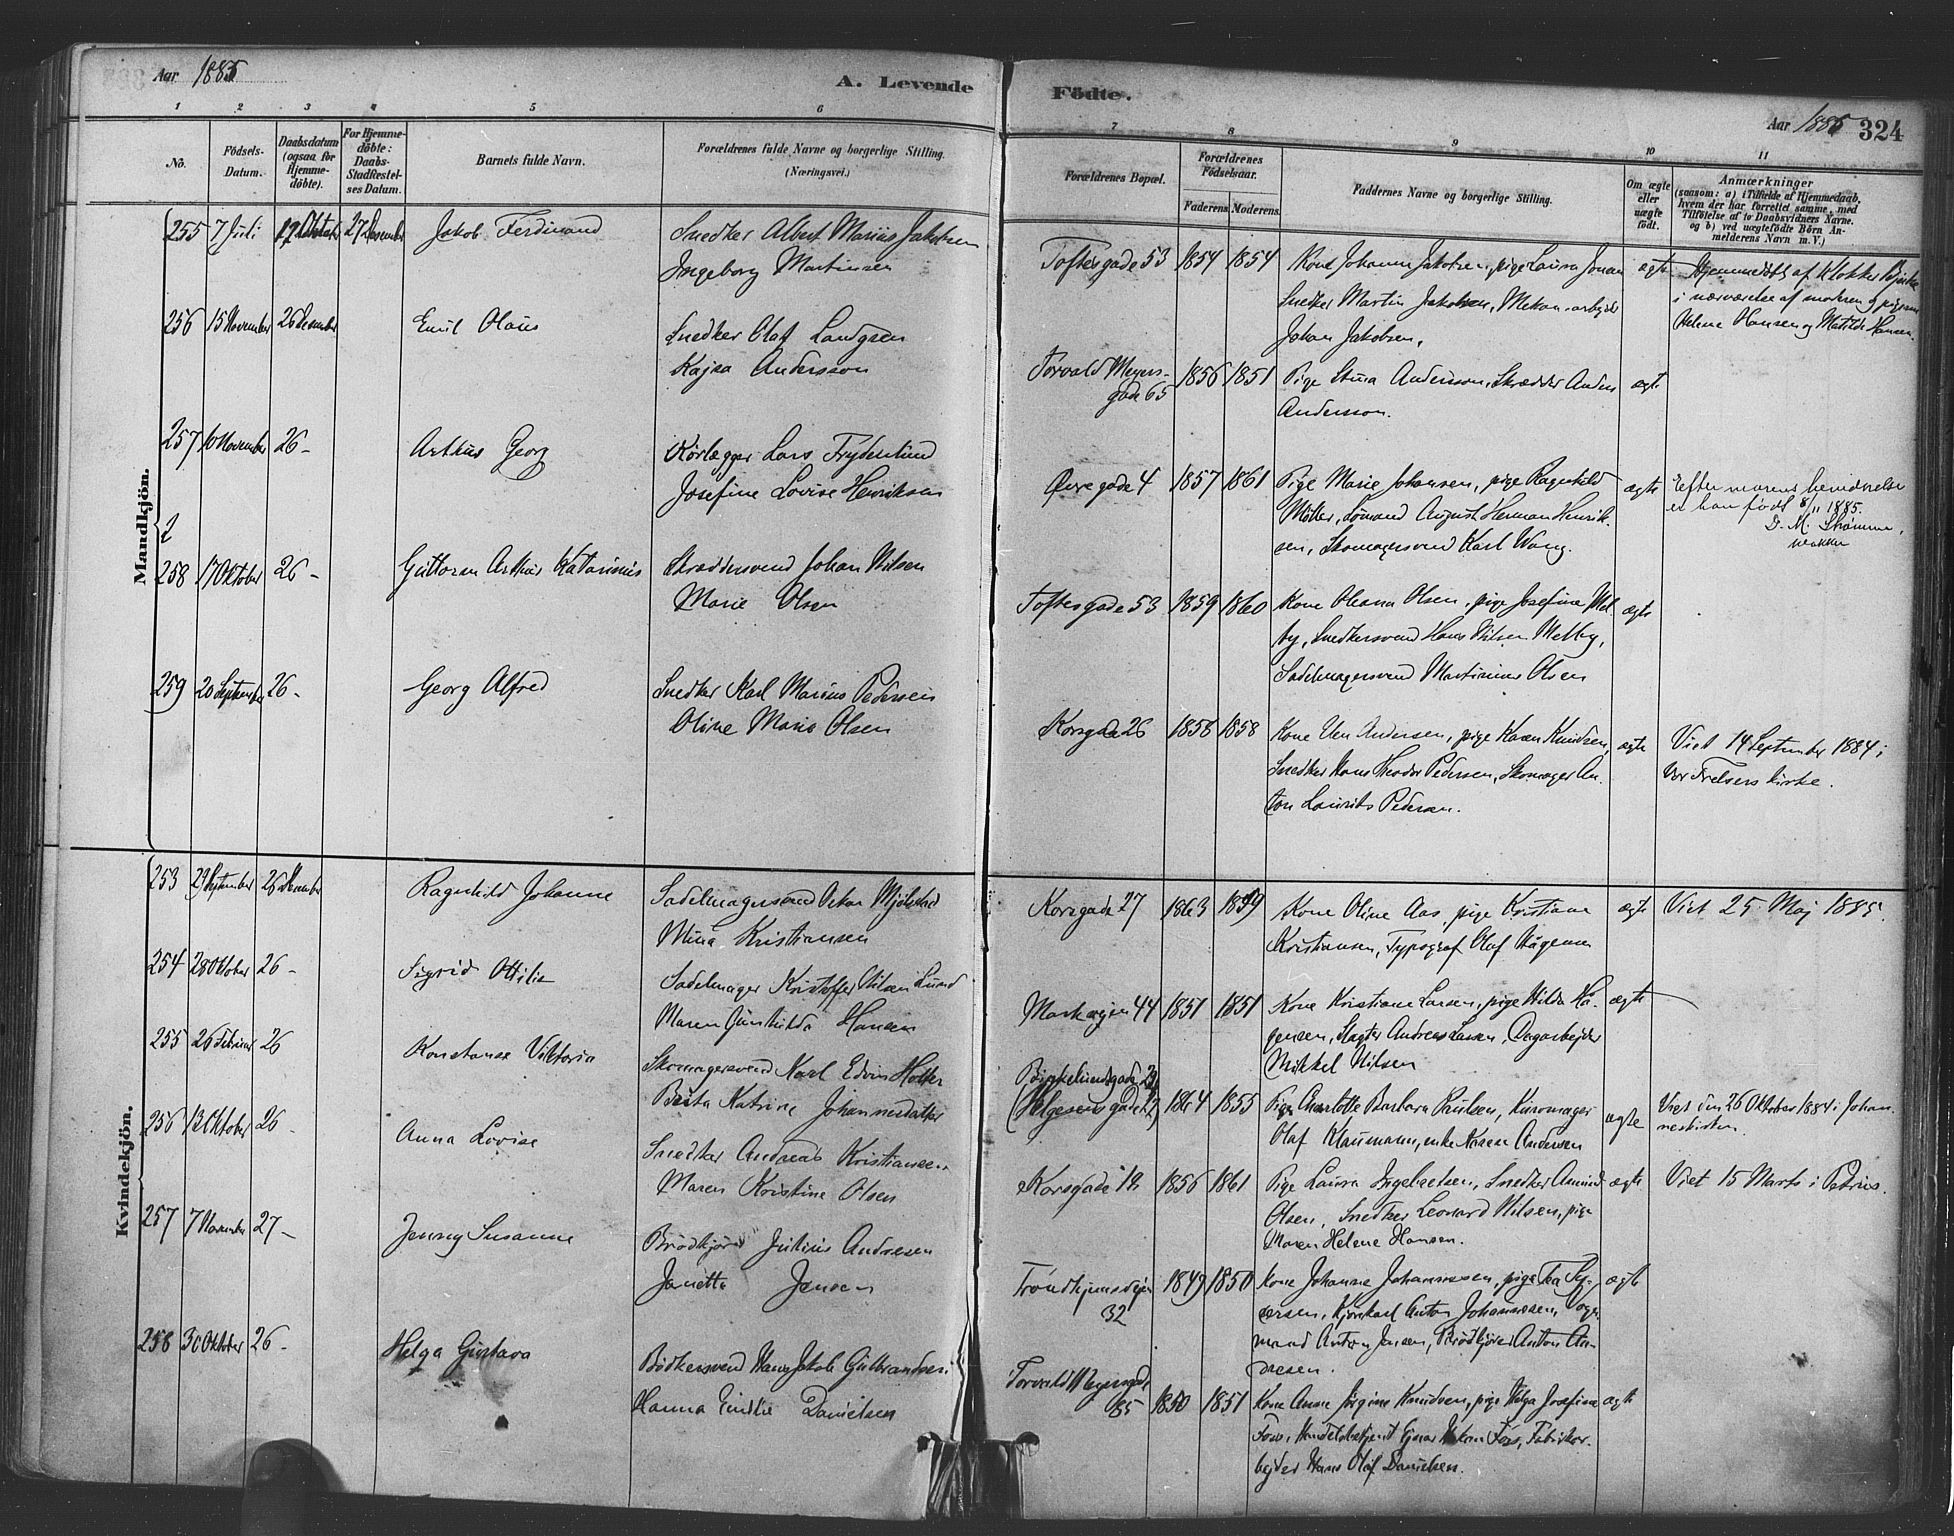 Aar 1885
A. Levende
Födte.
Aar 1885
324
1 2 3 4 5 6 7 8 9 10 11
No.
Födsels-
Datum.
Daabsdatum
(ogsaa for
Hjemme-
döbte).
For Hjemme-
döbte:
Daabs-
Stadfæstel-
ses Datum.
Barnets fulde Navn.
Forældrenes fulde Navne og borgerlige Stilling.
(Næringsvei.)
Forældrenes Bopæl.
Forældrenes
Födselsaar.
Faderens.
Moderens.
Faddernes Navne og borgerlige Stilling.
Om ægte
eller
uægte
födt.
Anmærkninger
(saasom: a) i Tilfælde af Hjemmedaab,
hvem der har forrettet samme, med
Tilföielse af to Daabsvidners Navne.
og b) ved uægtefödte Börn An-
melderens Navn m. V.)
Mandkjön.
2
255 7 Juli 12 Oktober 27 Desember Jakob Ferdinand
Snedker Albert Marius Jakobsen
Ingeborg Martinsen
Toftesgade 53 1854 1854 Kone Johanne Jakobsen, pige Laura Jonsen ægte
Snedker Martin Jakobsen, Mekan. arbejder
Johan Jakobsen,
Hjemmedøbt af Klokker Bjerke
i nærværelse af moren og pigerne
Helene Hansen og Matilde Hansen.
256 15 November 26 Desember Emil Olaus
Snedker Olaf Landgren
Kajsa Andersson
Torvald Meyers-
gade 65
1856 1851 Pige Stina Andersson, Skrædder Anders ægte
Andersson.
257 10 November 26 - Arthur Georg
Rørlægger Lars Frydenlund
Josefine Lovise Henriksen
Øvregade 4 1857 1861 Pige Marie Johansen, pige Ragnhild ægte
Møller, Sømand August Herman Henrik-
sen, Skomagersvend Karl Wang.
Efter morens henvendelse
er han født 8/11 1885.
258 17 Oktober 26 - Guttorm Arthur Katarinus
Skræddersvend Johan Nilsen
Marie Olsen
Toftesgade 53 1859 1860 Kone Oleana Olsen, pige Josefine Mel- ægte
by, Snedkersvend Hans Nilsen Melby,
Sadelmagersvend Martinius Olsen
259 20 September 26 - Georg Alfred
Snedker Karl Marius Pedersen
Oline Marie Olsen
Korsgade 26 1858 1858 Kone Andersen, pige Karen Knudsen, ægte
Snedker Hans Theodor Pedersen, Skomager An-
ton Laurits Pedersen.
Viet 14 September 1884 i
Vor Frelsers kirke.
Kvindekjön.
253 29 September 26 Desember Ragnhild Johanne
Sadelmagersvend Oskar Mjølstad
Mina Kristiansen
Korsgade 27 1863 1859 Kone Oline Aas, pige Kristiane ægte
Kristiansen, Typograf Olaf Hågensen
Viet 25 Maj 1885.
254 28 Oktober 26 - Sigrid Ottilie
Sadelmager Kristoffer Nilsen Lund
Maren Gunhilda Hansen
Markvejen 44 1851 1851 Kone Kristiane Larsen, pige Hilda Ha- ægte
gensen, Slagter Andreas Larsen, Dagarbejder
Mikkel Nilsen
255 26 Februar 26 Konstanse Viktoria
Skomagersvend Karl Edvin Holter
Brita Katrine Johannesdatter
Birkelundsgade
(Helgesens gade 17)
1864 1855 Pige Charlotte Barbara Paulsen, Kurvmager ægte
Olaf Klausmann, enke Karen Andersen
Viet den 26 Oktober 1884 i Johan-
neskirken.
256 13 Oktober 26 - Anna Lovise
Snedker Andreas Kristiansen
Maren Kristine Olsen
Korsgade 1856 1861 Pige Laura Ingebretsen, Snedker Amund ægte
Olsen, Snedker Leonard Nilsen, pige
Maren Helene Hansen.
Viet 15 Marts i Petrus.
257 7 November 27 - Jenny Susanne
Brødkjører Julius Andresen
Janetta Jensen
Trondhjemsvejen
32
1849 1850 Kone Johanne Johannessen, pige Tea ægte
Kjørekarl Anton Johannessen, Vogn-
mand Anton Jensen, Brødkjører Anton An-
dresen.
258 30 Oktober 26 - Helga Gustava
Bødkersvend Hans Jakob Gulbrandsen
Hanna Emilie Danielsen
Torvald Meyersgade
85
1850 1851 Kone Anne Jørgine Knudsen, pige Helga Josefine ægte
Foss, Handelsbetjent Ejnar Hakon Foss, Fabrikar-
bejder Hans Olaf Danielsen.